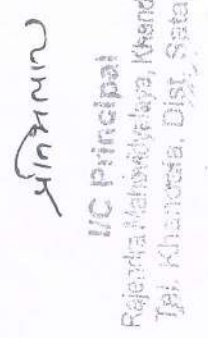 I/C Principal
Rajendra Mahavidyalaya, Khand
Tal. Khandala, Dist. Sata